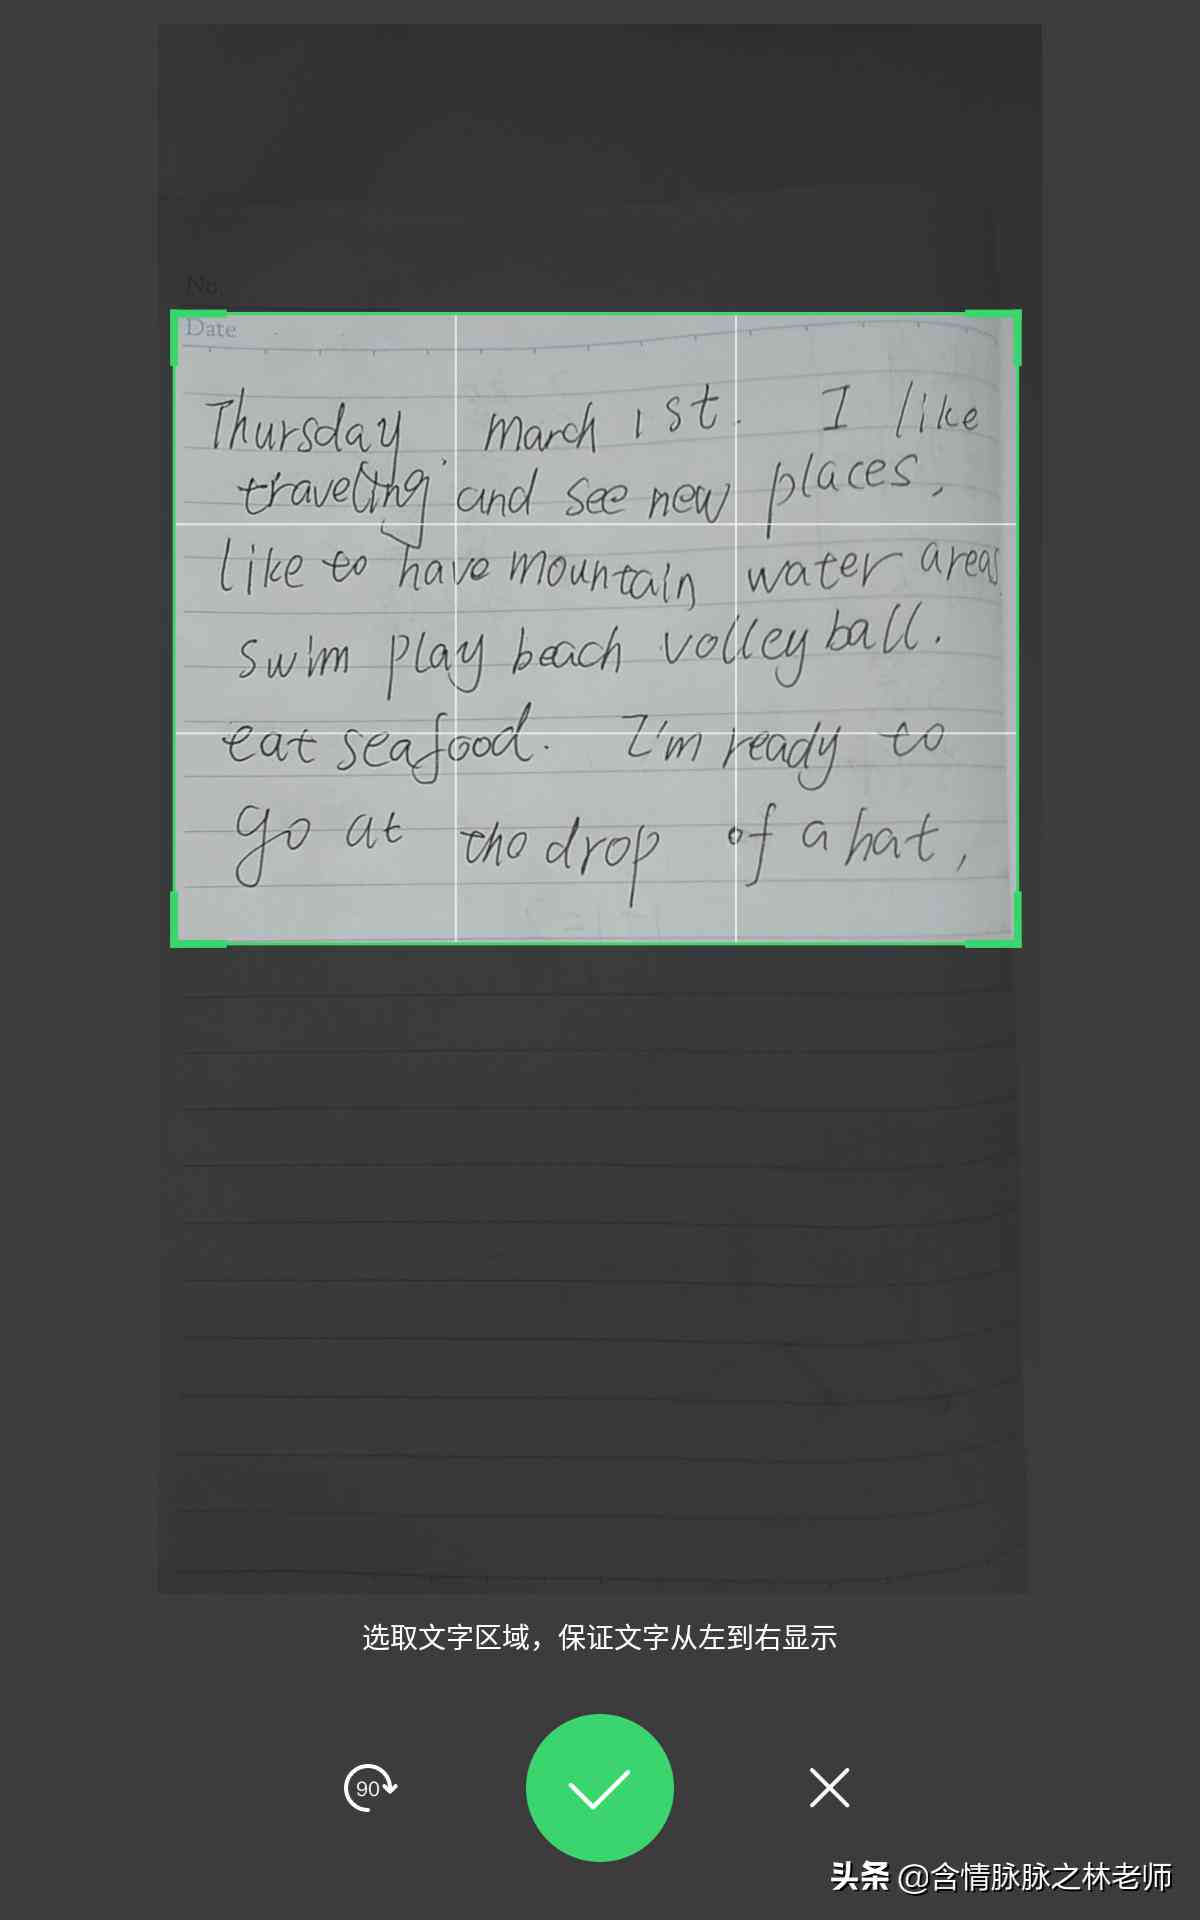 No.
Date
Thursday, march 1st. I like
traveling and see new places,
like to have mountain water areas
swim play beach volley ball.
eat seafood. I'm ready to
go at the drop of a hat,
选取文字区域，保证文字从左到右显示
90
头条 @含情脉脉之林老师